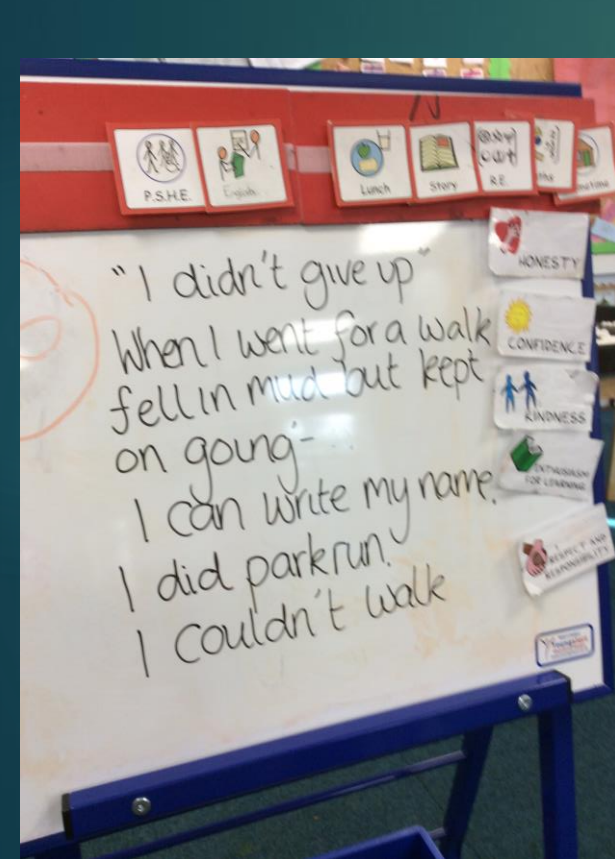 P.S.H.E.
English
Lunch
Story
R.E.
HONESTY
CONFIDENCE
KINDNESS
ENTHUSIASM
FOR LEARNING
RESPECT AND
RESPONSIBILITY
"I didn't give up"
When I went for a walk
fell in mud but kept
on going-
I can write my name.
I did parkrun.
I couldn't walk